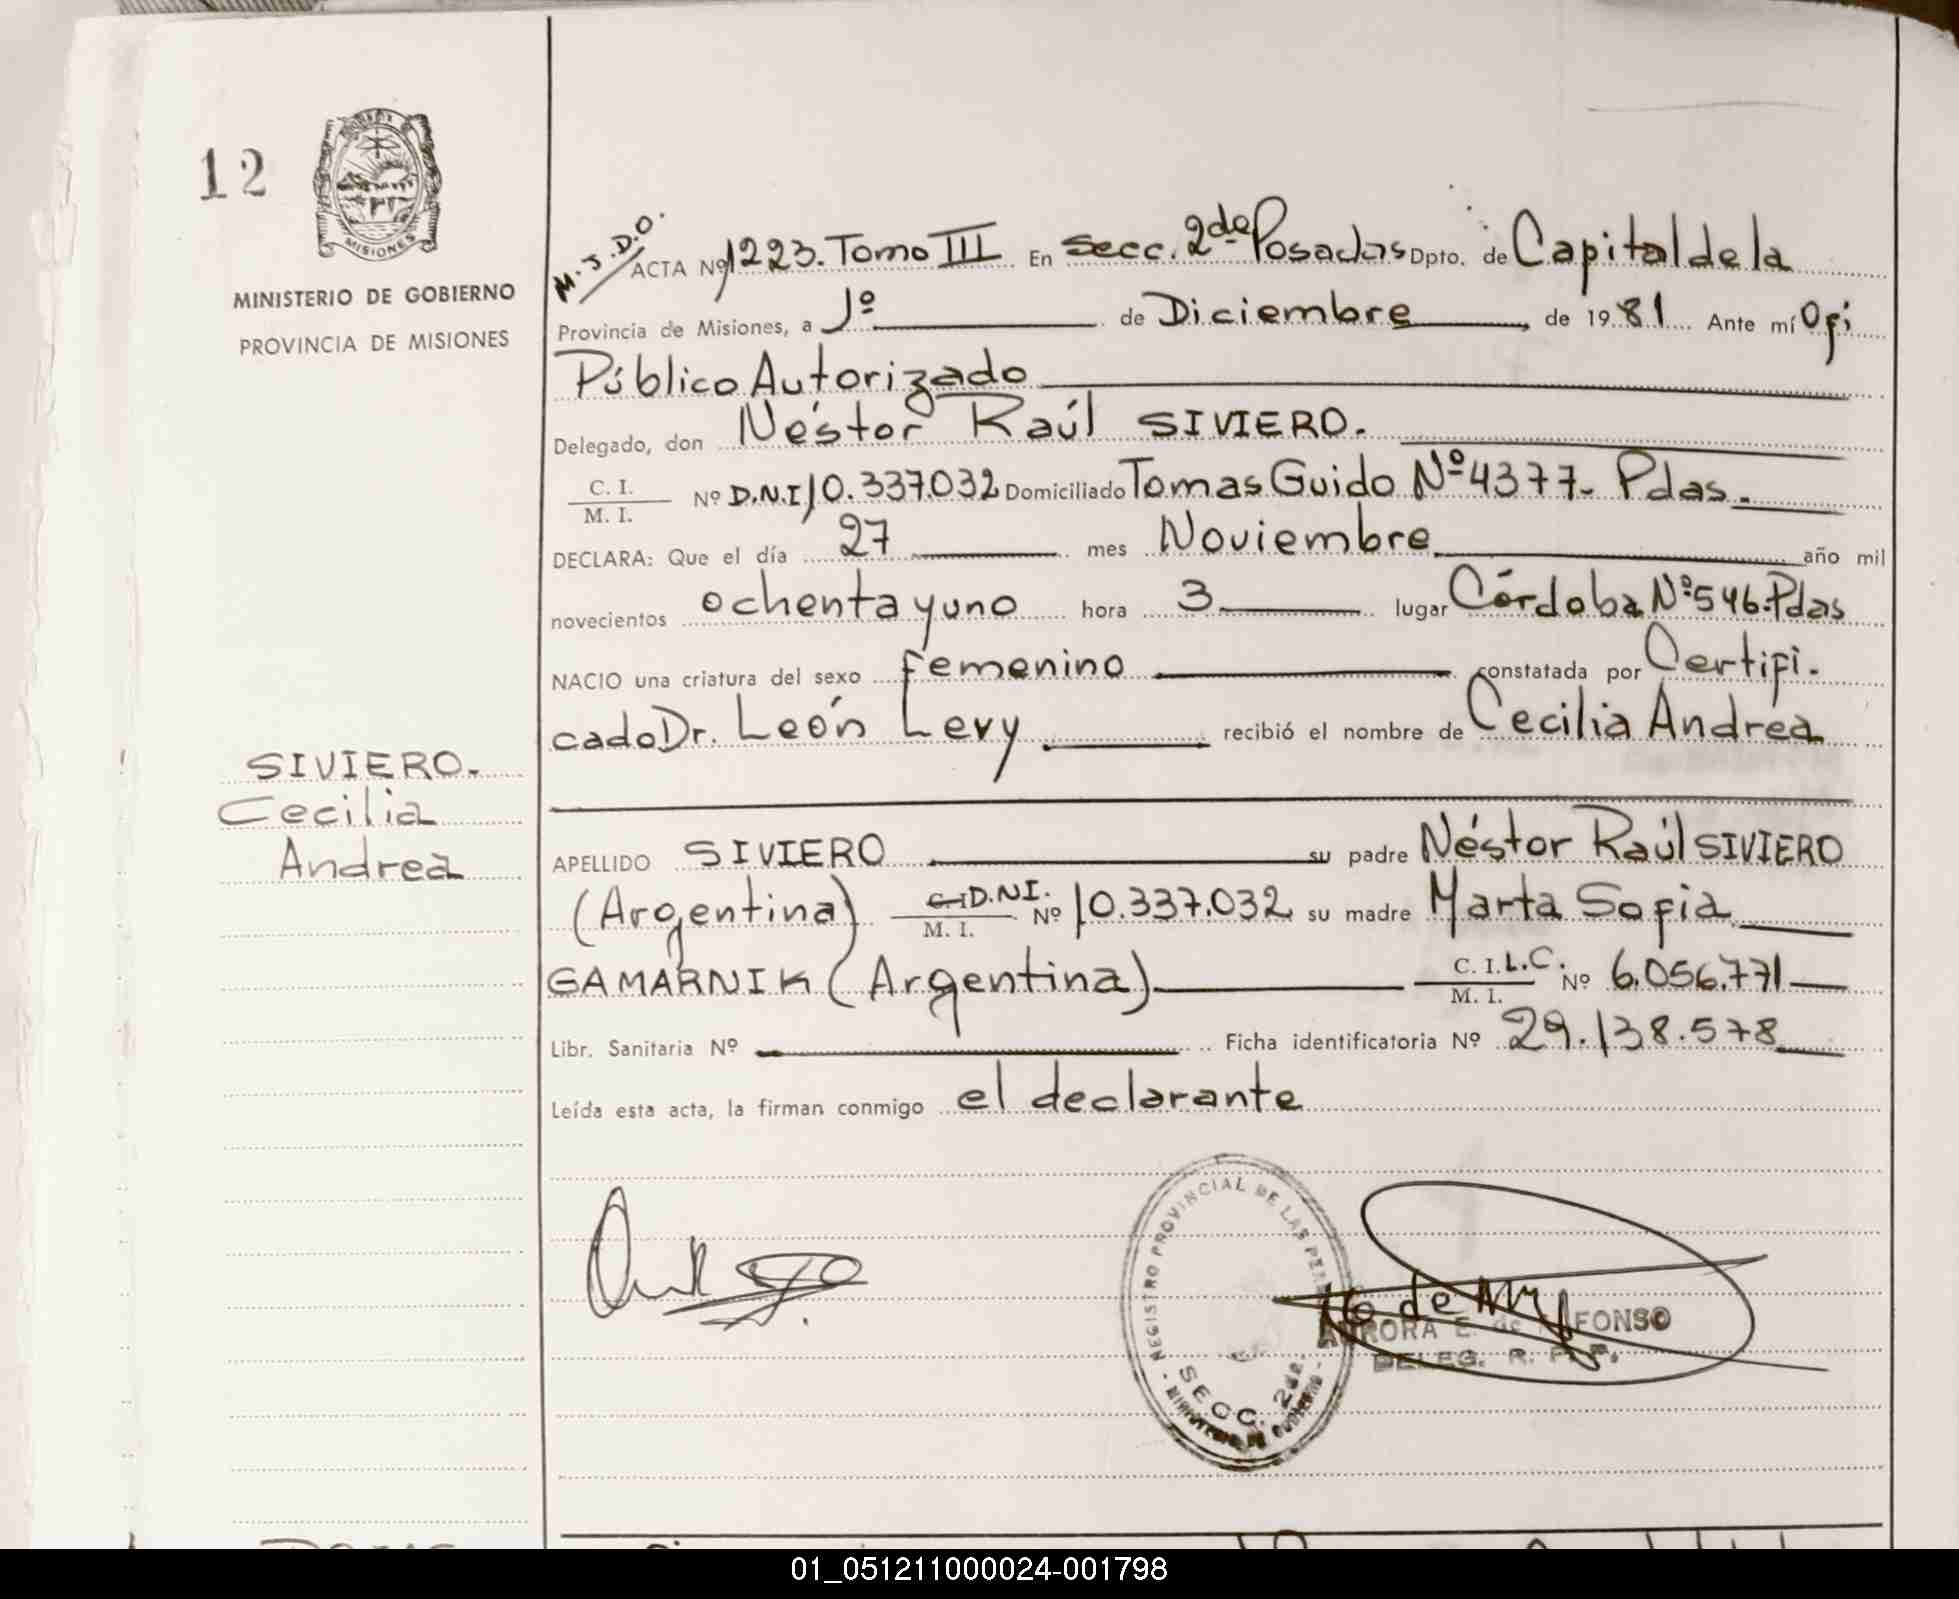 12
MISIONES
MINISTERIO DE GOBIERNO
PROVINCIA DE MISIONES
SIVIERO.
Cecilia
Andrea
M.J.D.O.
ACTA Nº 1223. Tomo III En Secc. 2da Posadas Dpto. de Capital de la
Provincia de Misiones, a 1º de Diciembre de 1981 Ante mí Ofi
Público Autorizado
Delegado, don Néstor Raúl SIVIERO.
C. I. / M. I. Nº D.N.I 10.337.032 Domiciliado Tomas Guido Nº 4377- Pdas.
DECLARA: Que el día 27 mes Noviembre año mil
novecientos ochenta y uno hora 3 lugar Córdoba Nº 546. Pdas
NACIO una criatura del sexo femenino constatada por Certifi.
cado Dr. León Levy recibió el nombre de Cecilia Andrea
APELLIDO SIVIERO su padre Néstor Raúl SIVIERO
(Argentina) C.I D.N.I. / M. I. Nº 10.337.032 su madre Marta Sofia
GAMARNIK (Argentina) C. I. L.C. / M. I. Nº 6.056.771
Libr. Sanitaria Nº Ficha identificatoria Nº 29.138.578
Leída esta acta, la firman conmigo el declarante
REGISTRO PROVINCIAL DE LAS PER
SECC. 2da.
MINISTERIO DE GOBIERNO
AURORA E. de FONSO
DELEG. R. P.
01_051211000024-001798